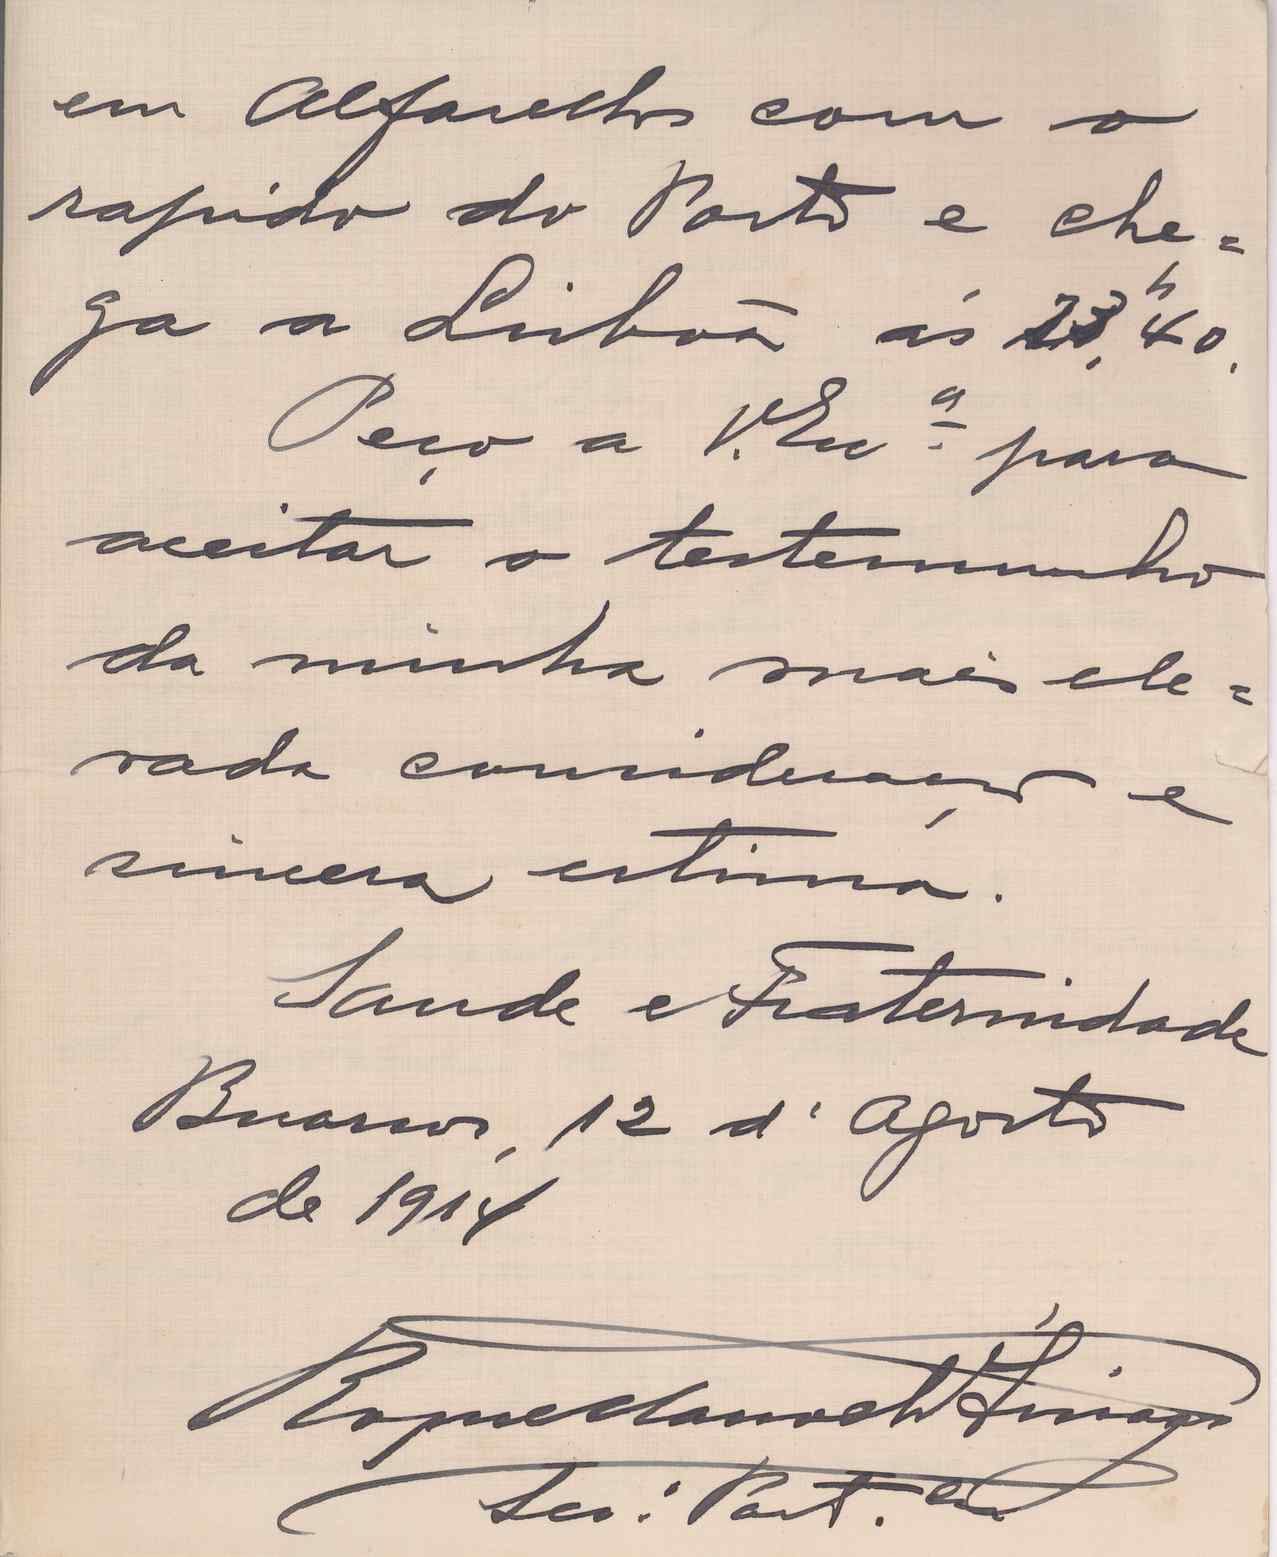 em Alfarellos com o
rapido do Porto e che=
ga a Lisboa ás 23,h40.
Peço a V. Exª para
aceitar o testemunho
da minha mais ele=
vada consideração e
sincera estima.
Saude e Fraternidade
Buarcos, 12 d'Agosto
de 1914
Roque Manoel d'Arriaga